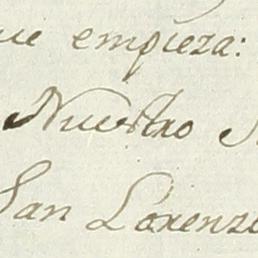 ue empieza:
Nuestro S
San Lorenz